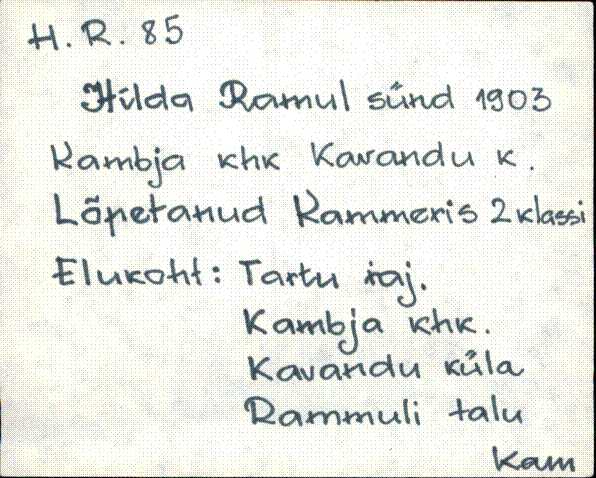 H. R. 85
Hilda Ramul sünd 1903
Kambja khk Kavandu k.
Lõpetanud Kammeris 2 klassi
Elukoht: Tartu raj.
Kambja khk.
Kavandu küla
Rammuli talu
Kam